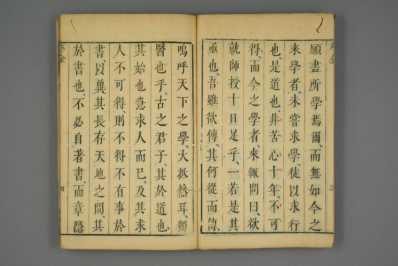 願盡所學焉爾而無如今之
來學者未嘗求學徒以求行
也是道也非苦心十年不可
得而今之學者來輒問曰欲
就師授十日足乎一若是其
亟也吾雖欲傳其何從而傳
嗚呼天下之學大抵然耳
醫也乎古之君子其於道也
其始也意求人而已及其求
人不可得則不得不有事於
書以冀其長存天地之間其
於書也不必自著書而章